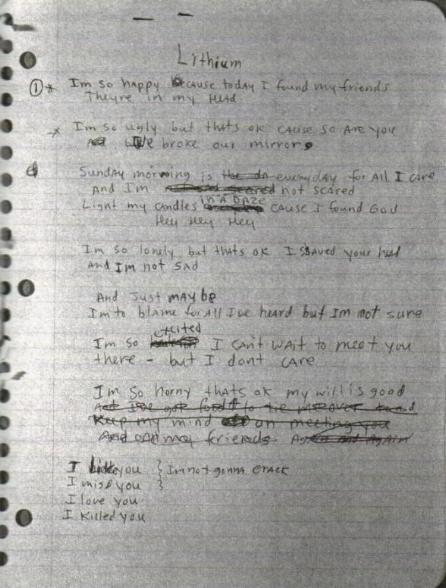 Lithium
① * Im so happy cause today I found my friends
Theyre in my Head
* Im so ugly but thats ok cause so ARE you
We broke our mirrors
Sunday morning is everyday for All I care
And I'm not scared
IN A DAZE
Light my candles cause I found God
Hey Hey Hey
Im so lonely but thats ok I Shaved your head
and Im not SAD
And Just maybe
Im to blame for All Ive heard but Im not sure
excited
Im so I can't wait to meet you
there - but I dont care
Im so horny thats ok my will is good
Keep my mind on meeting you
And my friends. Again and Again
I like you } Im not gonna crack
I miss you }
I love you
I Killed you